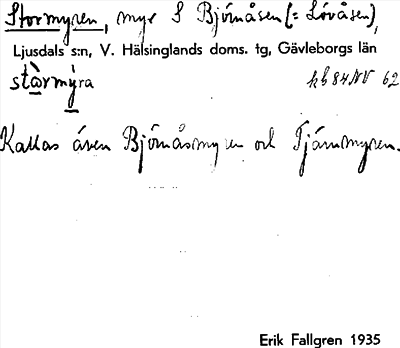 Stormyren, myr S Björnåsen (= Lövåsen),
Ljusdals s:n, V. Hälsinglands doms. tg, Gävleborgs län
stòrmỳra kb 84 NV 62
Kallas även Björnåsmyren och Tjärnmyren.
Erik Fallgren 1935